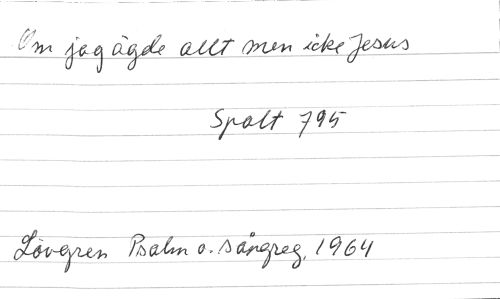 Om jag ägde allt men icke Jesus
Spalt 795
Lövgren Psalm o. sångreg. 1964